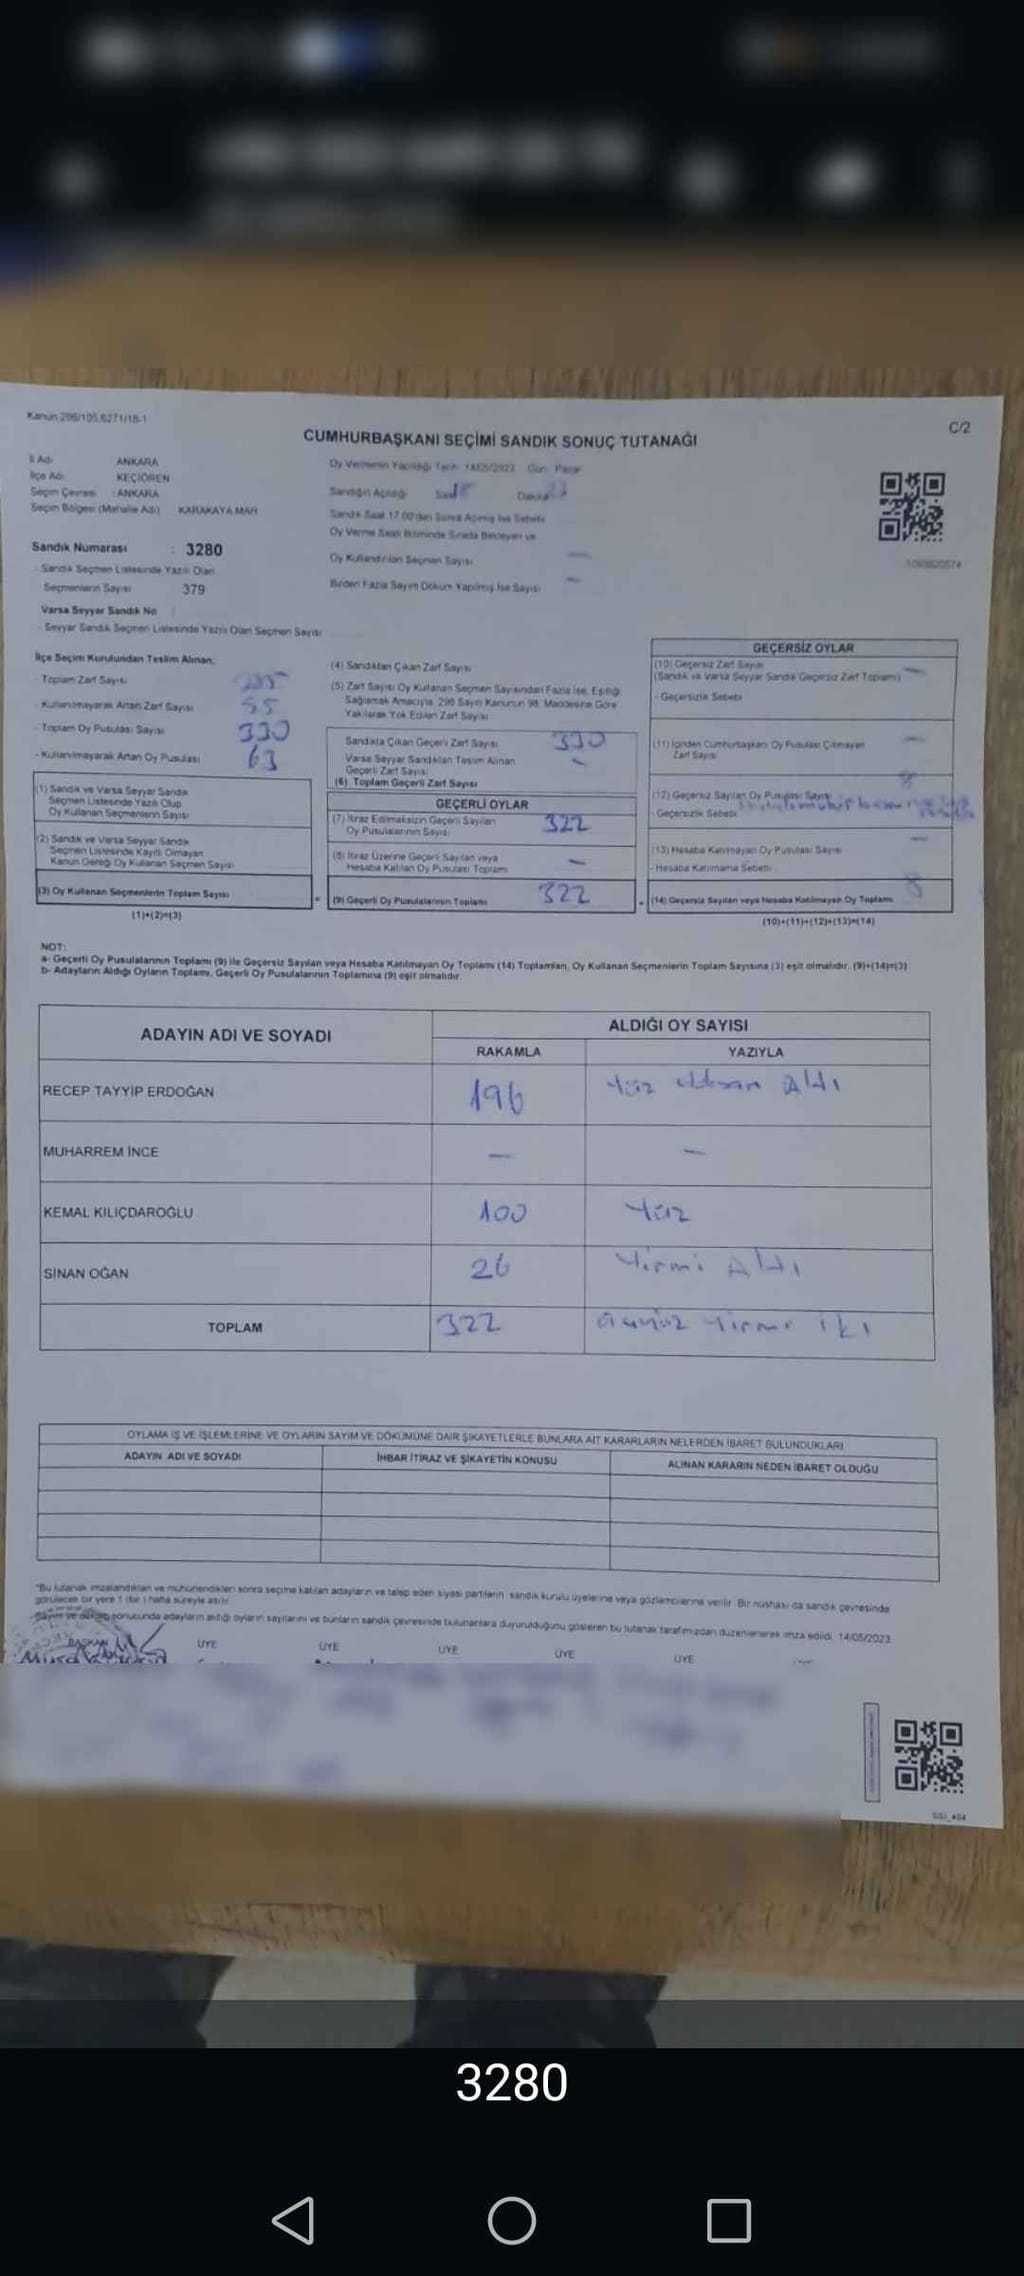 Kanun 298/105.6271/18-1
C/2
CUMHURBAŞKANI SEÇİMİ SANDIK SONUÇ TUTANAĞI
İl Adı ANKARA
İlçe Adı KEÇİÖREN
Seçim Çevresi : ANKARA
Seçim Bölgesi (Mahalle Adı) KARAKAYA MAH
Sandık Numarası : 3280
- Sandık Seçmen Listesinde Yazılı Olan
Seçmenlerin Sayısı 379
Varsa Seyyar Sandık No
- Seyyar Sandık Seçmen Listesinde Yazılı Olan Seçmen Sayısı
Oy Vermenin Yapıldığı Tarih 14/05/2023 Gün: Pazar
Sandığın Açıldığı Saat Dakika
Sandık Saat 17.00'den Sonra Açılmış İse Sebebi
Oy Verme Saati Bitiminde Sırada Bekleyen ve
Oy Kullandırılan Seçmen Sayısı —
Birden Fazla Sayım Döküm Yapılmış İse Sayısı —
İlçe Seçim Kurulundan Teslim Alınan;
- Toplam Zarf Sayısı
- Kullanılmayarak Artan Zarf Sayısı 55
- Toplam Oy Pusulası Sayısı 330
- Kullanılmayarak Artan Oy Pusulası 63
(1) Sandık ve Varsa Seyyar Sandık
Seçmen Listesinde Yazılı Olup
Oy Kullanan Seçmenlerin Sayısı
(2) Sandık ve Varsa Seyyar Sandık
Seçmen Listesinde Kayıtlı Olmayan
Kanun Gereği Oy Kullanan Seçmen Sayısı
(3) Oy Kullanan Seçmenlerin Toplam Sayısı
(1)+(2)=(3)
(4) Sandıktan Çıkan Zarf Sayısı
(5) Zarf Sayısı Oy Kullanan Seçmen Sayısından Fazla ise, Eşitliği
Sağlamak Amacıyla, 298 Sayılı Kanunun 98. Maddesine Göre
Yakılarak Yok Edilen Zarf Sayısı
Sandıkta Çıkan Geçerli Zarf Sayısı 330
Varsa Seyyar Sandıktan Teslim Alınan
Geçerli Zarf Sayısı —
(6) Toplam Geçerli Zarf Sayısı
GEÇERLİ OYLAR
(7) İtiraz Edilmeksizin Geçerli Sayılan
Oy Pusulalarının Sayısı 322
(8) İtiraz Üzerine Geçerli Sayılan veya
Hesaba Katılan Oy Pusulası Toplamı —
(9) Geçerli Oy Pusulalarının Toplamı 322
GEÇERSİZ OYLAR
(10) Geçersiz Zarf Sayısı —
(Sandık ve Varsa Seyyar Sandık Geçersiz Zarf Toplamı)
- Geçersizlik Sebebi
(11) İçinden Cumhurbaşkanı Oy Pusulası Çıkmayan
Zarf Sayısı —
(12) Geçersiz Sayılan Oy Pusulası Sayısı 8
- Geçersizlik Sebebi
(13) Hesaba Katılmayan Oy Pusulası Sayısı —
- Hesaba Katılmama Sebebi
(14) Geçersiz Sayılan veya Hesaba Katılmayan Oy Toplamı 8
(10)+(11)+(12)+(13)=(14)
NOT:
a- Geçerli Oy Pusulalarının Toplamı (9) ile Geçersiz Sayılan veya Hesaba Katılmayan Oy Toplamı (14) Toplamları, Oy Kullanan Seçmenlerin Toplam Sayısına (3) eşit olmalıdır. (9)+(14)=(3)
b- Adayların Aldığı Oyların Toplamı, Geçerli Oy Pusulalarının Toplamına (9) eşit olmalıdır.
ADAYIN ADI VE SOYADI ALDIĞI OY SAYISI
RAKAMLA YAZIYLA
RECEP TAYYİP ERDOĞAN 196 Yüz doksan Altı
MUHARREM İNCE — —
KEMAL KILIÇDAROĞLU 100 Yüz
SİNAN OĞAN 26 Yirmi Altı
TOPLAM 322 üçyüz Yirmi iki
OYLAMA İŞ VE İŞLEMLERİNE VE OYLARIN SAYIM VE DÖKÜMÜNE DAİR ŞİKAYETLERLE BUNLARA AİT KARARLARIN NELERDEN İBARET BULUNDUKLARI
ADAYIN ADI VE SOYADI İHBAR İTİRAZ VE ŞİKAYETİN KONUSU ALINAN KARARIN NEDEN İBARET OLDUĞU
"Bu tutanak imzalandıktan ve mühürlendikten sonra seçime katılan adayların ve talep eden siyasi partilerin sandık kurulu üyelerine veya gözlemcilerine verilir. Bir nüshası da sandık çevresinde
görülecek bir yere 1 (bir) hafta süreyle asılır.
Sayım ve döküm sonucunda adayların aldığı oyların sayılarını ve bunların sandık çevresinde bulunanlara duyurulduğunu gösteren bu tutanak tarafımızdan düzenlenerek imza edildi. 14/05/2023
BAŞKAN ÜYE ÜYE ÜYE ÜYE ÜYE
3280